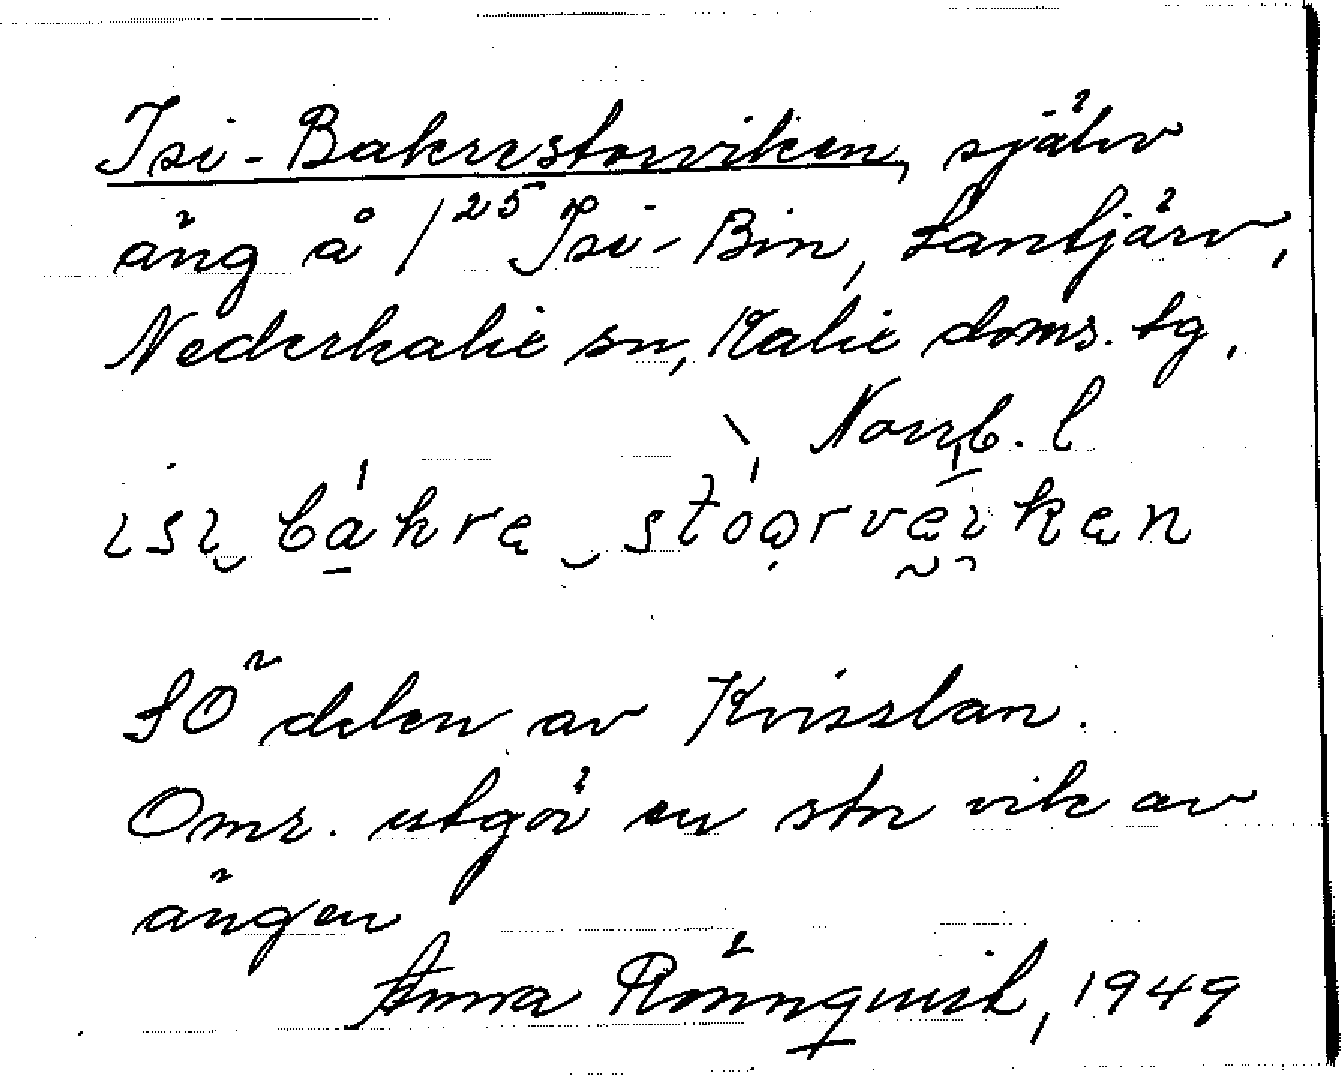 Isi-Bakrestorviken, själv
äng å 1²⁵ Isi-Bin, Santjärv,
Nederkalix sn, Kalix doms. tg,
Norrb. l
ısı bahre storveıken
SÖ delen av Kvisslan.
Omr. utgör en stor vik av
ängen
Anna Rönnqvist, 1949